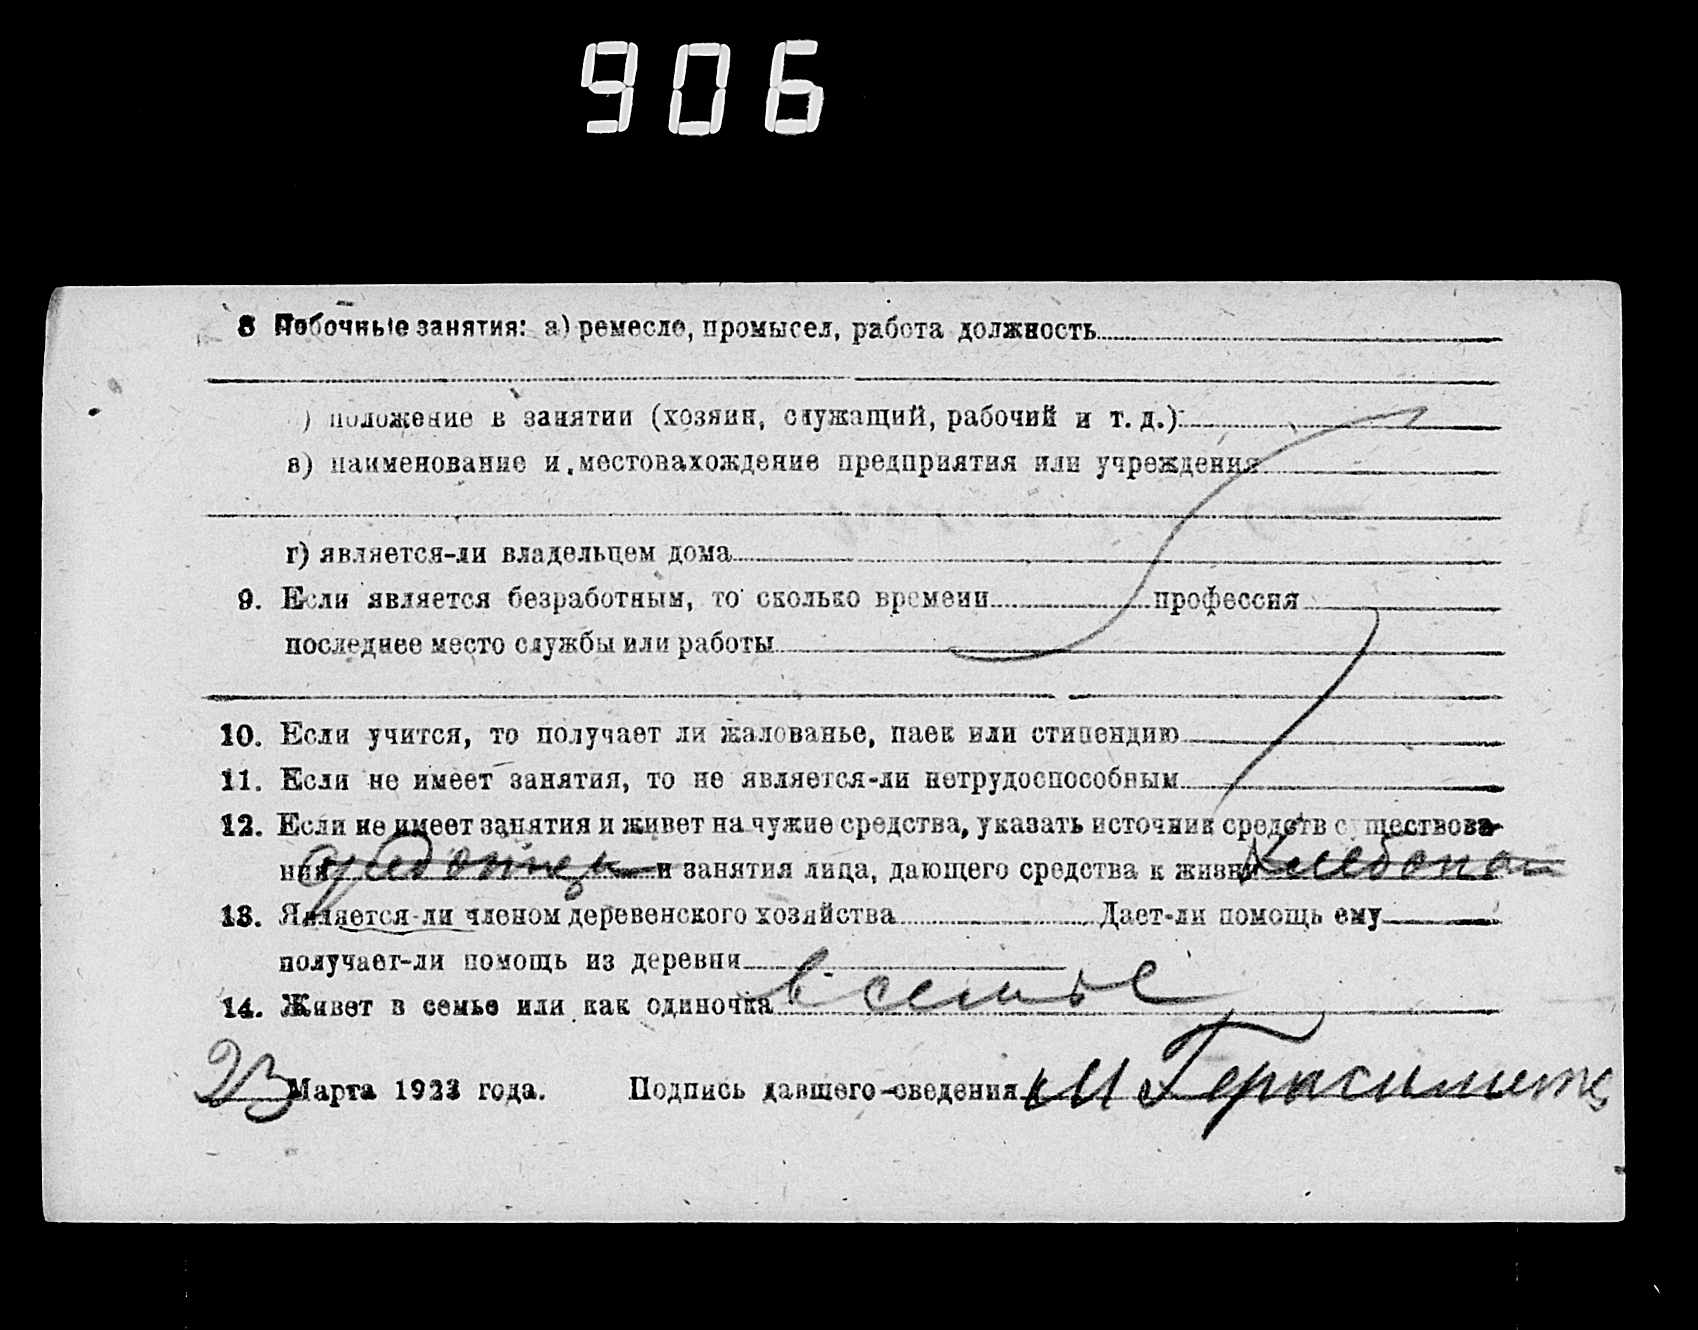 906
8 Побочные занятия: а) ремесло, промысел, работа должность
) положение в занятии (хозяин, служащий, рабочий и т. д.):
в) наименование и местонахождение предприятия или учреждения
г) является-ли владельцем дома
9. Если является безработным, то сколько времени профессия
последнее место службы или работы
10. Если учится, то получает ли жалованье, паек или стипендию
11. Если не имеет занятия, то не является-ли нетрудоспособным
12. Если не имеет занятия и живет на чужие средства, указать источник средств существова-
ния и занятия лица, дающего средства к жизни
13. Является-ли членом деревенского хозяйства Дает-ли помощь ему
получает-ли помощь из деревни
14. Живет в семье или как одиночка в семье
23 Марта 1923 года. Подпись давшего сведения М Герасимец